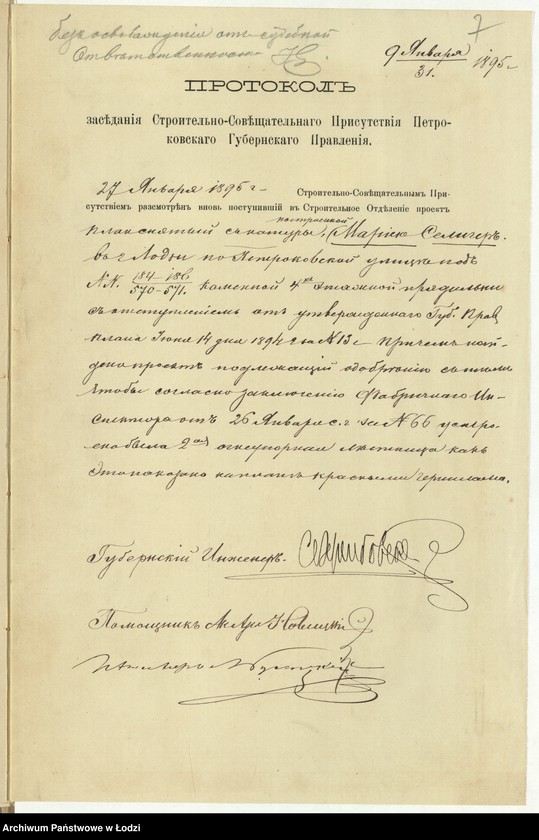 Безъ освобожденія отъ судебной
Отвѣтственности
7
9 Января
31. 1895 г
ПРОТОКОЛЪ
засѣданія Строительно-Совѣщательнаго Присутствія Петро-
ковскаго Губернскаго Правленія.
27 Января 1895 г. Строительно-Совѣщательнымъ При-
сутствіемъ разсмотрѣнъ вновь поступившій въ Строительное Отдѣленіе проектъ
построенной
планъ снятый съ натуры, Маріею Селигеръ.
въ г. Лодзи по Петроковской улицѣ подъ
NN. 184-186
570-571. каменной 4хъ этажной прядильни
съ отступленіемъ отъ утвержденнаго Губ. Прав
плана Іюня 14 дня 1894 г за N 13 Причемъ най-
денъ проектъ подлежащій одобренію съ тѣмъ
чтобы согласно заключенію Фабричнаго Ин-
спектора отъ 26 Января с. г за N 66 устро-
ена была 2ая огнеупорная лѣстница какъ
это показано на планѣ красными чернилами.
Губернскій Инженеръ.
Помощникъ Новицкій
Archiwum Państwowe w Łodzi